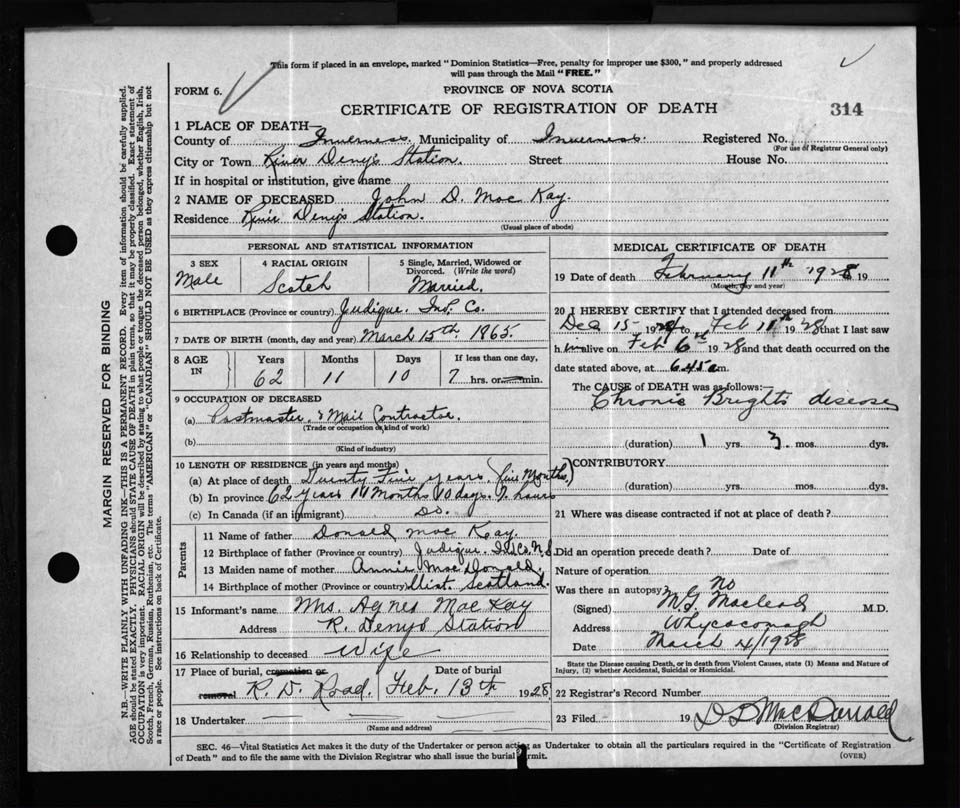 This form if placed in an envelope, marked "Dominion Statistics—Free, penalty for improper use $300," and properly addressed
will pass through the Mail "FREE."
FORM 6.
PROVINCE OF NOVA SCOTIA
CERTIFICATE OF REGISTRATION OF DEATH
314
1 PLACE OF DEATH—
County of Inverness Municipality of Inverness. Registered No.
(For use of Registrar General only)
City or Town River Denys Station. Street House No.
If in hospital or institution, give name
2 NAME OF DECEASED John D. Mac Kay.
Residence River Denys Station.
(Usual place of abode)
PERSONAL AND STATISTICAL INFORMATION
3 SEX
Male
4 RACIAL ORIGIN
Scotch
5 Single, Married, Widowed or
Divorced. (Write the word)
Married.
6 BIRTHPLACE (Province or country) Judique. Inv. Co.
7 DATE OF BIRTH (month, day and year) March 15th 1865.
8 AGE
IN
Years
62
Months
11
Days
10
If less than one day,
7 hrs. or min.
9 OCCUPATION OF DECEASED
(a) Postmaster & Mail Contractor.
(Trade or occupation or kind of work)
(b)
(Kind of industry)
10 LENGTH OF RESIDENCE (in years and months)
(a) At place of death Twenty Five years. (five Months)
(b) In province 62 years 11 Months 10 days. 7 hours
(c) In Canada (if an immigrant) Do.
Parents
11 Name of father Donald Mac Kay.
12 Birthplace of father (Province or country) Judique. In Co. N.S
13 Maiden name of mother Annie Mac Donald.
14 Birthplace of mother (Province or country) Uist. Scotland.
15 Informant's name Mrs. Agnes Mac Kay
Address R. Denys Station
16 Relationship to deceased Wife
17 Place of burial, cremation or
removal R. D. Road.
Date of burial
Feb. 13th 1928
18 Undertaker
(Name and address)
MEDICAL CERTIFICATE OF DEATH
19 Date of death February 11th 1928 19
(Month, day and year)
20 I HEREBY CERTIFY that I attended deceased from
Dec 15 1927 to Feb 11th 1928 that I last saw
him alive on Feb 6th 1928 and that death occurred on the
date stated above, at 6.45 a m.
The CAUSE of DEATH was as follows:
Chronic Brights disease
(duration) 1 yrs. 3. mos. dys.
CONTRIBUTORY
(duration) yrs. mos. dys.
21 Where was disease contracted if not at place of death?
Did an operation precede death? Date of
Nature of operation
Was there an autopsy No
(Signed) M.G. Macleod M.D.
Address Whycocomagh
Date March 4/1928
State the Disease causing Death, or in death from Violent Causes, state (1) Means and Nature of
Injury, (2) whether Accidental, Suicidal or Homicidal.
22 Registrar's Record Number
23 Filed 19 D D MacDonald
(Division Registrar)
SEC. 46—Vital Statistics Act makes it the duty of the Undertaker or person acting as Undertaker to obtain all the particulars required in the "Certificate of Registration
of Death" and to file the same with the Division Registrar who shall issue the burial permit.
(OVER)
MARGIN RESERVED FOR BINDING
N.B.—WRITE PLAINLY WITH UNFADING INK—THIS IS A PERMANENT RECORD. Every item of information should be carefully supplied.
AGE should be stated EXACTLY. PHYSICIANS should STATE CAUSE OF DEATH in plain terms, so that it may be properly classified. Exact statement of
OCCUPATION is very important. RACIAL ORIGIN will be described by stating to what people or tongue the deceased person belonged, whether English, Irish,
Scotch, French, German, Russian, Ruthenian, etc. The terms "AMERICAN" or "CANADIAN" SHOULD NOT BE USED as they express citizenship but not
a race or people. See instructions on back of Certificate.